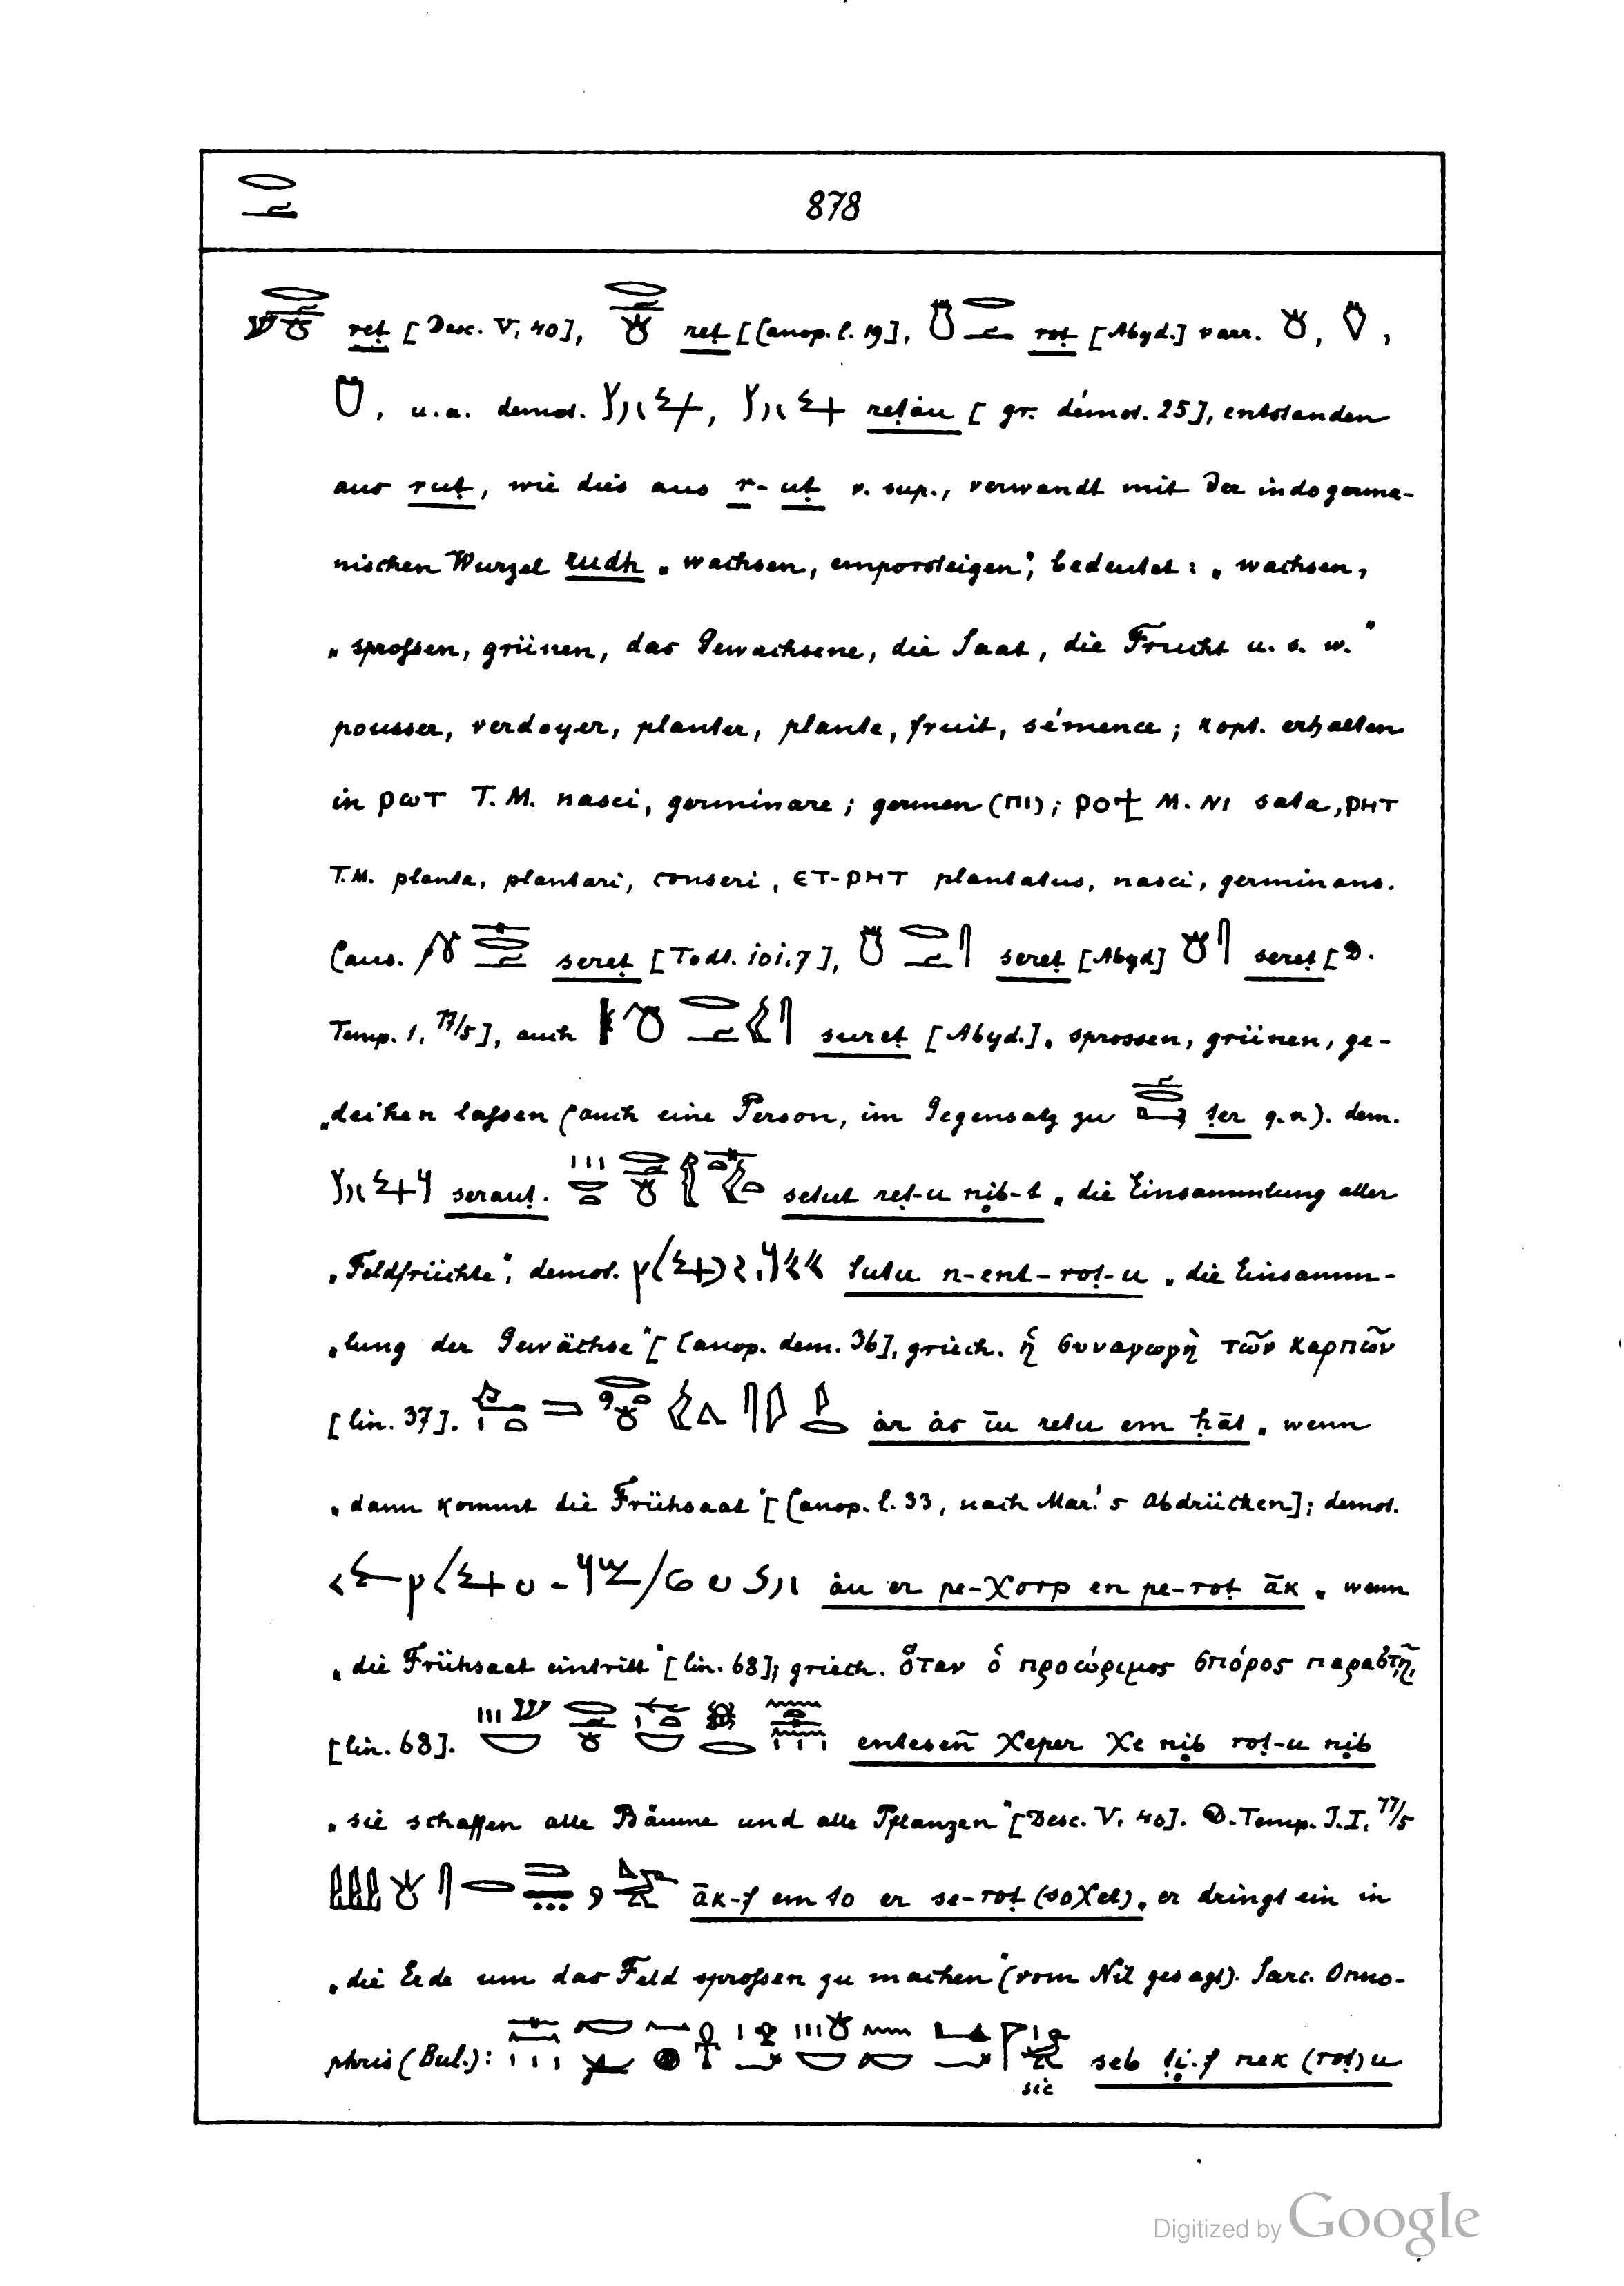 878
reṭ [Desc. V, 40], reṭ [Canop. l. 19], roṭ [Abyd.] varr. , ,
, u.a. demot. , reṭȧu [gr. démot. 25], entstanden
aus ruṭ, wie dies aus r-uṭ v. sup., verwandt mit der indogerma-
nischen Wurzel rudh „wachsen, emporsteigen“, bedeutet: „wachsen,
„sproſsen, grünen, das Gewachsene, die Saat, die Frucht u. s. w.“
pousser, verdoyer, planter, plante, fruit, sémence; kopt. erhalten
in ⲣⲱⲧ T. M. nasci, germinare; germen (ⲡⲓ); ⲣⲟϯ M. ⲛⲓ sata, ⲣⲏⲧ
T.M. planta, plantari, conseri, ⲉⲧ-ⲣⲏⲧ plantatus, nasci, germinans.
Caus. sereṭ [Todt. 101.7], sereṭ [Abyd] sereṭ [D.
Temp. 1, 77/5], auch sureṭ [Abyd.], sprossen, grünen, ge-
„deihen laſsen (auch eine Person, im Gegensatz zu ṭer q.v.). dem.
serauṭ. setut reṭ-u nib-t „die Einsammlung aller
„Feldfrüchte“, demot. tutu n-ent-roṭ-u „die Einsamm-
„lung der Gewächse“ [Canop. dem. 36], griech. ἡ συναγωγὴ τῶν καρπῶν
[lin. 37]. ȧr ȧs īu retu em ḥāt „wenn
„dann kommt die Frühsaat“ [Canop. l. 33, nach Mar.'s Abdrücken]; demot.
ȧu er pe-χorp en pe-roṭ āk „wenn
„die Frühsaat eintritt“ [lin. 68]; griech. ὅταν ὁ προώριμος σπόρος παραστῇ,
[lin. 68]. entesen̄ χeper χe nib roṭ-u nib
„sie schaffen alle Bäume und alle Pflanzen“ [Desc. V, 40]. D. Temp. I. I, 77/5
āk-f em to er se-roṭ (soχet) „er dringt ein in
„die Erde um das Feld sproſsen zu machen“ (vom Nil gesagt). Sarc. Onno-
phris (Bul.): seb ṭi-f nek (roṭ)u
sic
Digitized by Google